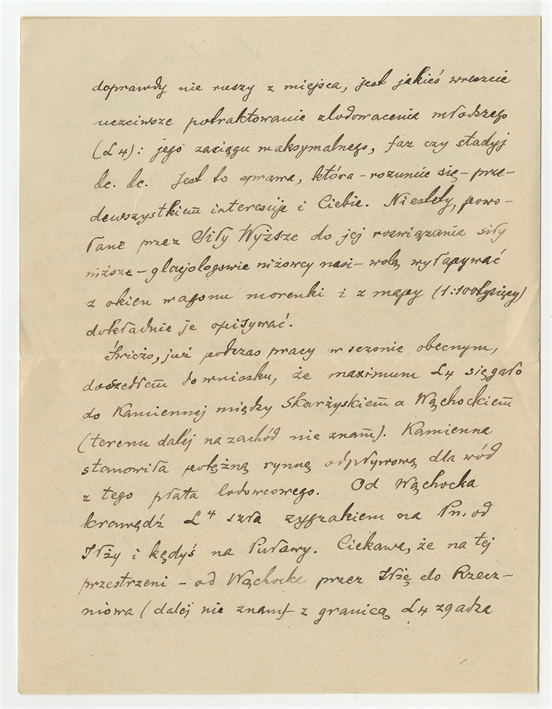 doprawdy nie ruszy z miejsca, jest jakieś wreszcie
uczciwsze potraktowanie zlodowacenia młodszego
(L4): jego zasięgu maksymalnego, faz czy stadyj
&c. &c. Jest to sprawa, która - rozumie się - prze-
dewszystkiem interesuje i Ciebie. Niestety, powo-
łane przez Siły Wyższe do jej rozwiązania siły
niższe - glacjologowie niżowcy nasi - wolą wyłapywać
z okien wagonu morenki i z mapy (1:100tysięcy)
dokładnie je opisywać.
Świeżo, już podczas pracy w sezonie obecnym,
doszedłem do wniosku, że maximum L4 sięgało
do Kamiennej między Skarżyskiem a Wąchockiem
(terenu dalej na zachód nie znam). Kamienna
stanowiła potężną rynnę odpływową dla wód
z tego płata lodowcowego. Od Wąchocka
krawędź L4 szła zygzakiem na Pn. od
Iłży i kędyś na Puławy. Ciekawe, że na tej
przestrzeni - od Wąchocka przez Iłżę do Rzecz-
niowa (dalej nie znam) - z granicą L4 zgadza